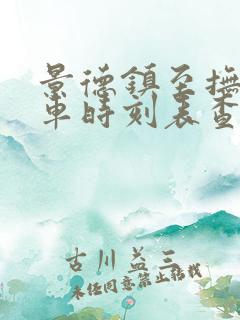 景德鎮至撫
車時刻表查
古川益三
未经同意禁止转载